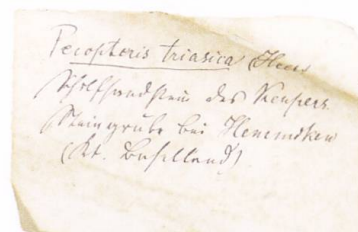 Pecopteris triasica Heer
Schilfsandstein des Keupers.
Steingrube bei Hemmiken
(Kt. Baselland)